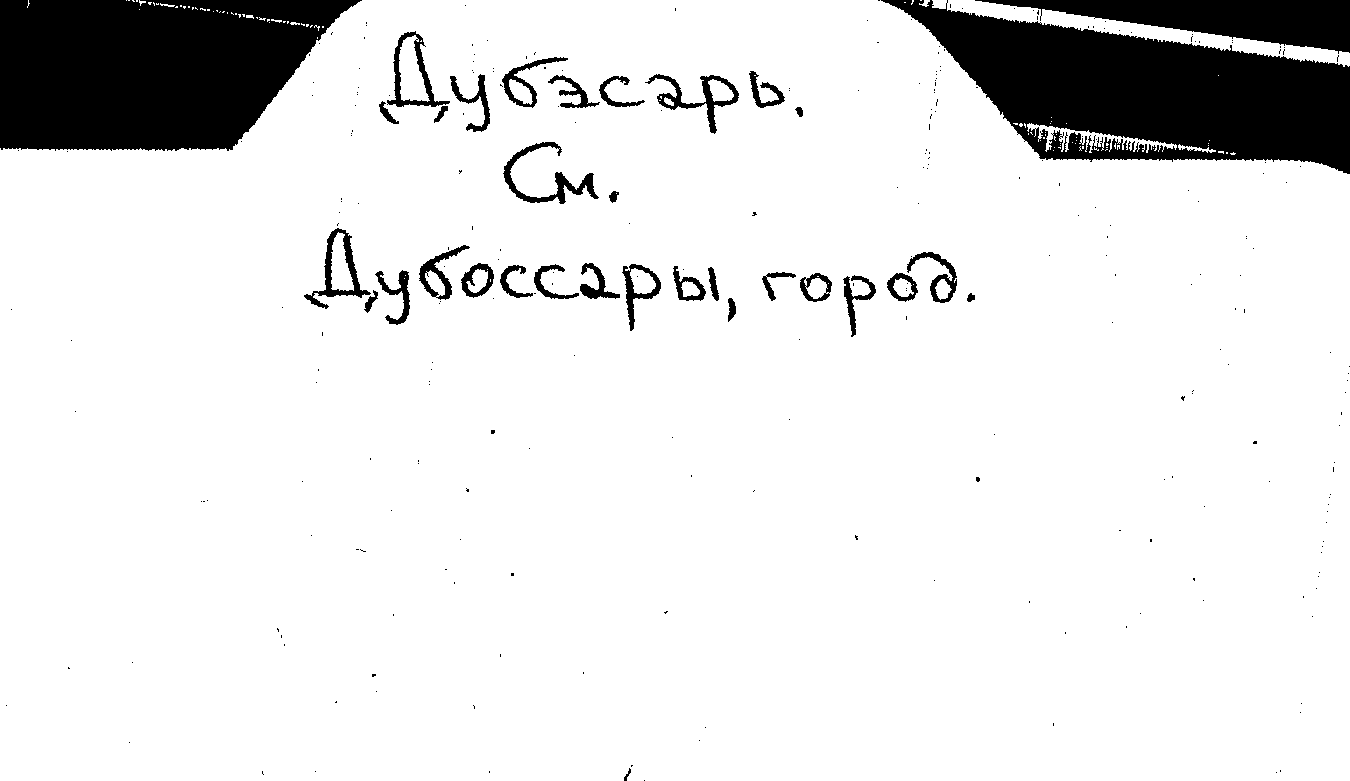 Дубэсарь.
См.
Дубоссары, город.